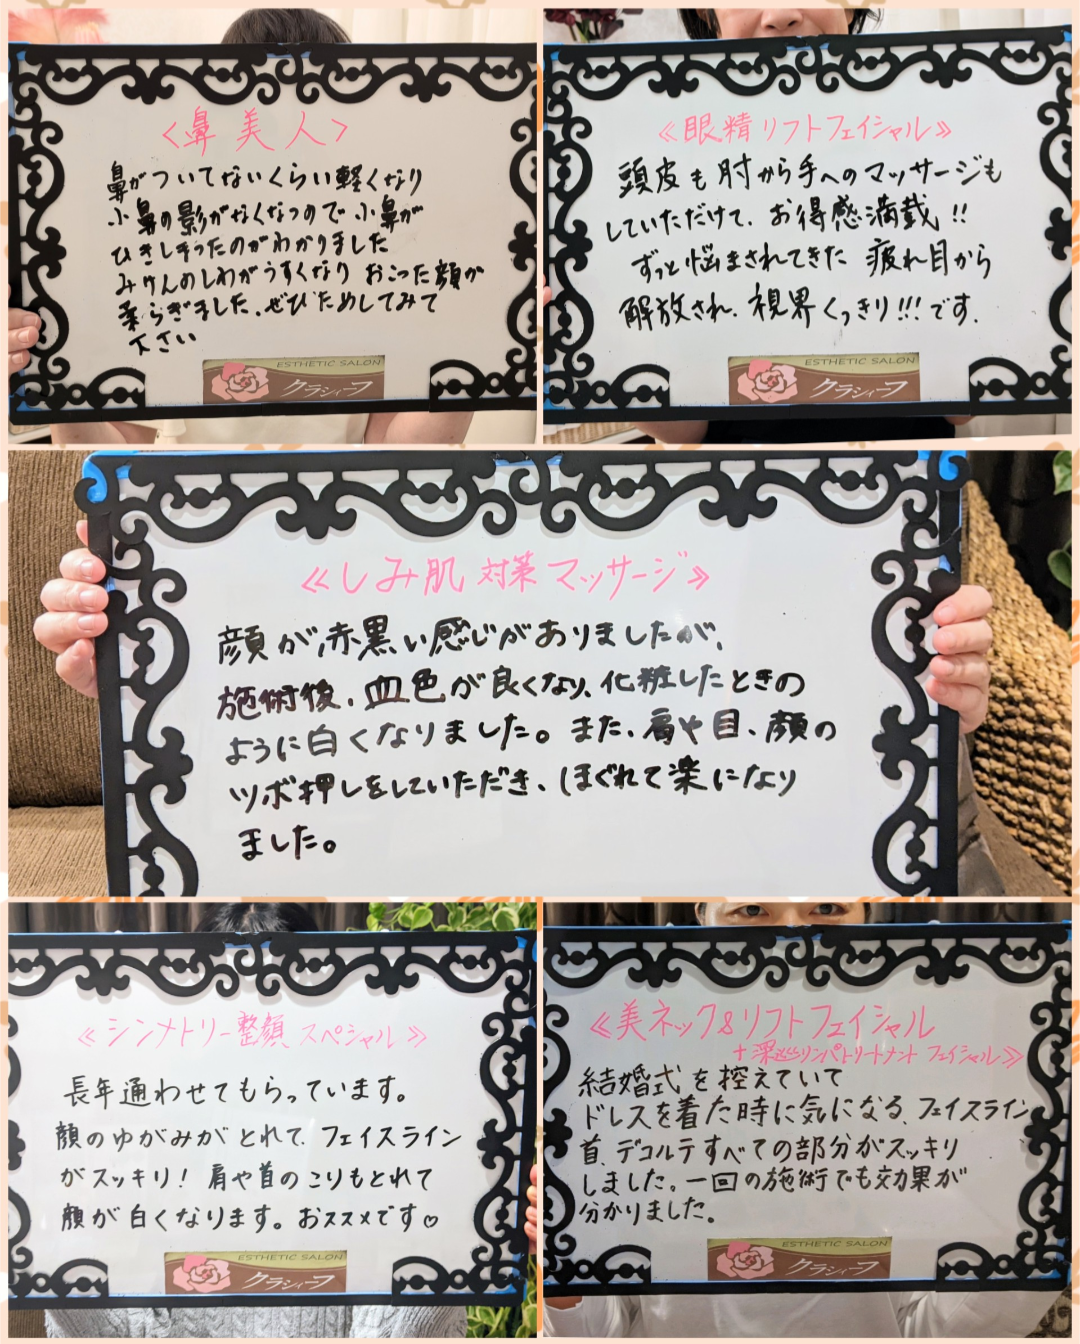 <鼻美人>
鼻がついてないくらい軽くなり
小鼻の影がなくなったので小鼻が
ひきしまったのがわかりました
みけんのしわがうすくなり おこった顔が
柔らぎました。ぜひためしてみて
下さい
ESTHETIC SALON
クラシィーフ
≪眼精リフトフェイシャル≫
頭皮も肘から手へのマッサージも
していただけて、お得感満載!!
ずっと悩まされてきた 疲れ目から
解放され、視界くっきり!!!です。
ESTHETIC SALON
クラシィーフ
≪しみ肌対策マッサージ≫
顔が赤黒い感じがありましたが、
施術後、血色が良くなり、化粧したときの
ように白くなりました。また、肩や目、顔の
ツボ押しをしていただき、ほぐれて楽になり
ました。
≪シンメトリー整顔 スペシャル≫
長年通わせてもらっています。
顔のゆがみがとれて、フェイスライン
がスッキリ! 肩や首のこりもとれて
顔が白くなります。おススメです♡
ESTHETIC SALON
クラシィーフ
≪美ネック&リフトフェイシャル
+深巡リンパトリートメント フェイシャル≫
結婚式を控えていて
ドレスを着た時に気になる、フェイスライン
首、デコルテすべての部分がスッキリ
しました。一回の施術でも効果が
分かりました。
ESTHETIC SALON
クラシィーフ